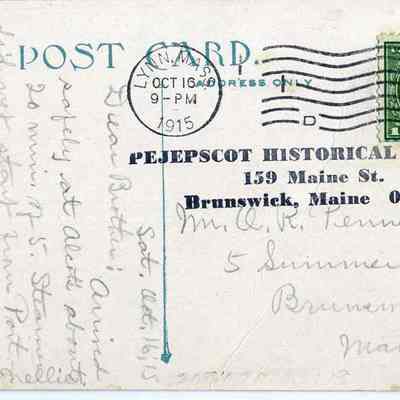 POST CARD.
ADDRESS ONLY
LYNN, MASS.
OCT 16
9-PM
1915
D
PEJEPSCOT HISTORICAL
159 Maine St.
Brunswick, Maine 0
Mr. A. K.
5 Summer
Bruns
Ma
Sat. Oct. 16, 15
Dear Brother;
Arrived
safely at about
20 min. of 5.
not start from Port
Nellie